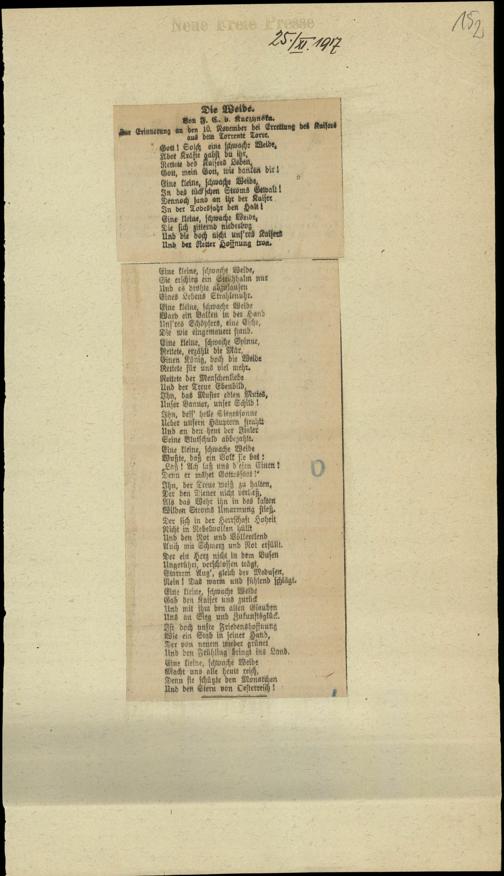 Neue Freie Presse
152
25./XI. 1917
Die Weide.
Von F. C. v. Kuczynska.
Zur Erinnerung an den 10. November bei Errettung des Kaisers
aus dem Torrente Torre.
Gott! Solch eine schwache Weide,
Aber Kräfte gabst du ihr,
Rettete des Kaisers Leben,
Gott, mein Gott, wie danken dir!
Eine kleine, schwache Weide,
In des tück'schen Stroms Gewalt!
Dennoch fand an ihr der Kaiser
In der Todesfahr den Halt!
Eine kleine, schwache Weide,
Die sich zitternd niederbog
Und die doch nicht uns'res Kaisers
Und der Retter Hoffnung trog.
Eine kleine, schwache Weide,
Sie erschien ein Strohhalm nur
Und es drohte abzulaufen
Eines Lebens Strahlenuhr.
Eine kleine, schwache Weide
Ward ein Balken in der Hand
Uns'res Schöpfers, eine Eiche,
Die wie eingemauert stand.
Eine kleine, schwache Spinne,
Rettete, erzählt die Mär,
Einen König, doch die Weide
Rettete für uns viel mehr.
Rettete der Menschenliebe
Und der Treue Ebenbild,
Ihn, das Muster edlen Mutes,
Unser Banner, unser Schild!
Ihn, dess' helle Siegessonne
Ueber unsern Häuptern strahlt
Und an den heut der
Seine Blutschuld abbezahlt.
Eine kleine, schwache Weide
Wußte, daß ein Volk sie bat:
„Laß! Ach laß uns diesen Einen!
Denn er mähet Gottessaat!"
Ihn, der Treue weiß zu halten,
Der den Diener nicht verläßt,
Als das Wehr ihn in des kalten
Wilden Stroms Umarmung stieß.
Der sich in der Herrschaft Hoheit
Nicht in Nebelwolken hüllt
Und den Not und Völkerelend
Auch mit Schmerz und Not erfüllt.
Der ein Herz nicht in dem Busen
Ungerührt, verschlossen trägt,
Starrem Aug', gleich der Medusen,
Nein! Das warm und fühlend schlägt.
Eine kleine, schwache Weide
Gab den Kaiser uns zurück
Und mit ihm den alten Glauben
Uns an Sieg und Zukunftsglück.
Ist doch unsre Friedenshoffnung
Wie ein Stab in seiner Hand,
Der von neuem wieder grünet
Und den Frühling bringt ins Land.
Eine kleine, schwache Weide
Macht uns alle heute reich,
Denn sie schützte den Monarchen
Und den Stern von Oesterreich!